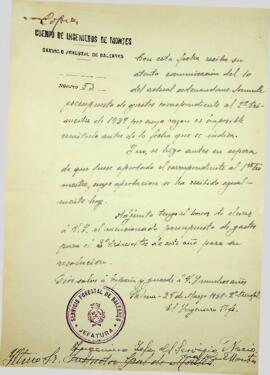 Copia
CUERPO DE INGENIEROS DE MONTES
SERVICIO FORESTAL DE BALEARES
Número 53
Con esta fecha recibo su
atenta comunicación del 10
del actual ordenando
presupuesto de gastos correspondiente al 2º tri-
mestre de 1938 por cuya razon es imposible
remitirlo antes de la fecha que se indica.
se hizo antes en espera
de que fuese aprobado el correspondiente al 1er tri-
mestre, cuya aprobacion se ha recibido igual-
mente hoy.
Adjunto tengo el honor de elevar
á V.I. el mencionado presupuesto de gastos
para el 2º trimestre de este año para su
resolucion.
Dios salve á España y guarde á V.I. muchos años
Palma 28 de Marzo 1938 2º Año Triunfal
El Ingeniero Jefe,
SERVICIO FORESTAL DE BALEARES
JEFATURA
Iltmo Sr. Ingeniero Jefe del Servicio N. de Montes